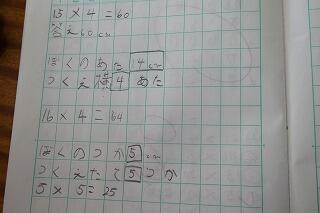 15×4=60
答え60cm
ぼくのあた14cm
つくえ横4あた
16×4=64
ぼくのつか5cm
つくえたて5つか
5×5=25